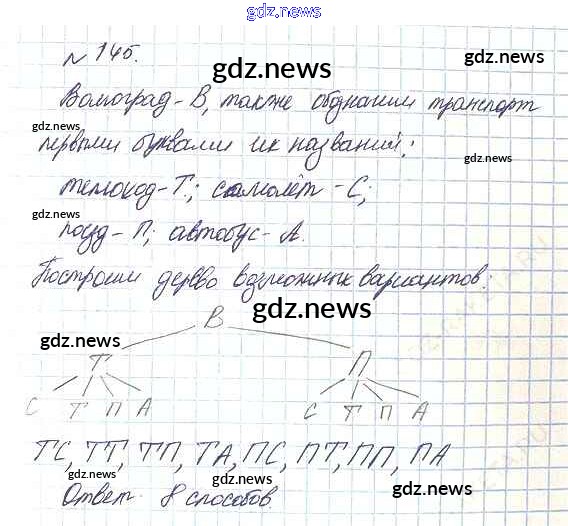 gdz.news
№ 145.
gdz.news
Волгоград - В, также обозначим транспорт
gdz.news
первыми буквами их названий:
gdz.news
теплоход - Т; самолёт - С;
gdz.news
поезд - П; автобус - А.
Построим дерево возможных вариантов:
gdz.news
В
gdz.news
Т П
С Т П А С Т П А
gdz.news gdz.news
ТС, ТТ, ТП, ТА, ПС, ПТ, ПП, ПА
gdz.news gdz.news
Ответ: 8 способов
gdz.news gdz.news